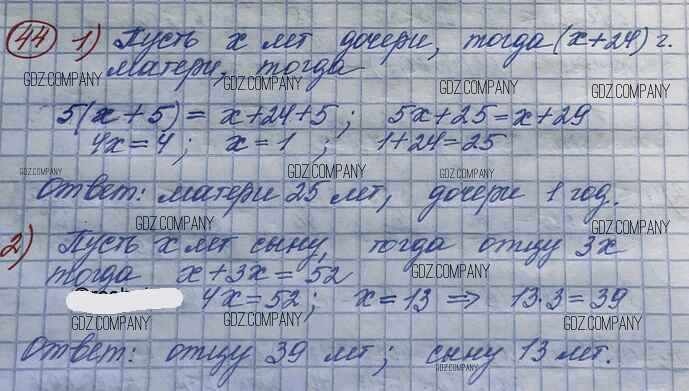 44 1) Пусть x лет дочери, тогда (x+24) г.
матери, тогда
GDZ.COMPANY GDZ.COMPANY GDZ.COMPANY GDZ.COMPANY
5(x+5) = x+24+5; 5x+25=x+29
4x=4; x=1; 1+24=25
GDZ.COMPANY GDZ.COMPANY GDZ.COMPANY
Ответ: матери 25 лет, дочери 1 год.
GDZ.COMPANY GDZ.COMPANY
2) Пусть x лет сыну, тогда отцу 3x
тогда x+3x=52
GDZ.COMPANY
4x=52; x=13 => 13·3=39
GDZ.COMPANY GDZ.COMPANY GDZ.COMPANY
Ответ: отцу 39 лет; сыну 13 лет.
GDZ.COMPANY